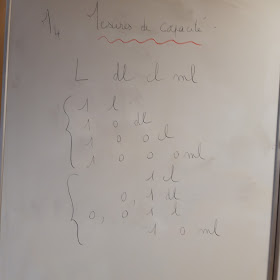 14 Mesures de capacité.
L dl cl ml
1 l
1 0 dl
1 0 0 cl
1 0 0 0 ml
1 cl
0, 1 dl
0, 0 1 l
1 0 ml